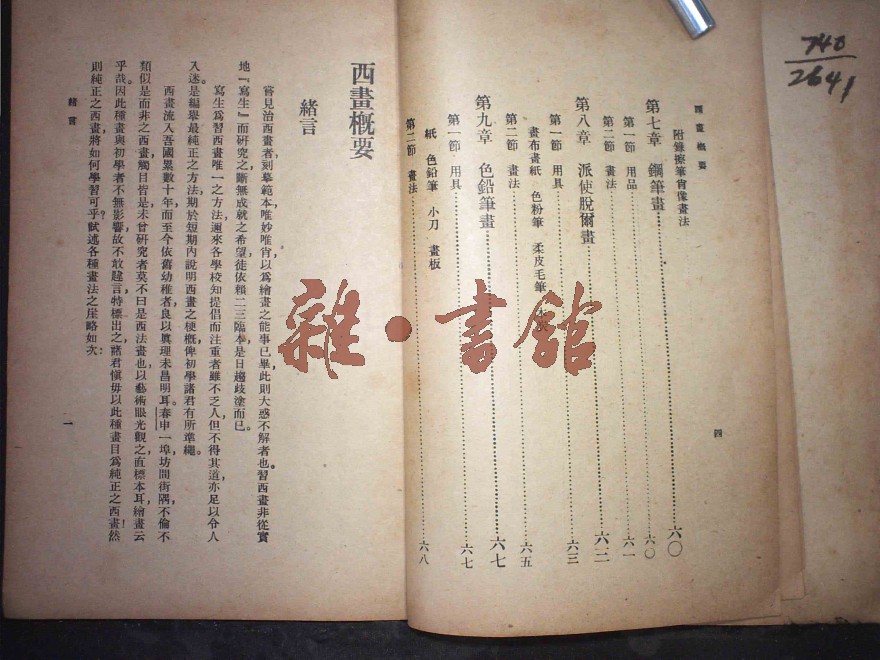 740
2641
西畫概要
附錄擦筆肖像畫法
第七章 鋼筆畫 六〇
第一節 用品 六〇
第二節 畫法 六一
第八章 派使脫爾畫 六三
第一節 用具 六三
畫布畫紙 色粉筆 柔皮毛筆
第二節 畫法 六五
第九章 色鉛筆畫 六七
第一節 用具 六七
紙 色鉛筆 小刀 畫板
第二節 畫法 六八
四
西畫概要
緒言
嘗見治西畫者,刻摹範本,唯妙唯肖,以爲繪畫之能事已畢,此則大惑不解者也。習西畫非從實
地『寫生』而研究之,斷無成就之希望,徒依賴二三臨本,是日趨歧塗而已。
寫生爲習西畫唯一之方法,邇來各學校知提倡而注重者雖不乏人,但不得其道,亦足以令人
入迷。是編舉最純正之方法,期於短期內說明西畫之梗概,俾初學諸君有所準繩。
西畫流入吾國,累數十年,而至今依舊幼稚者,良以眞理未昌明耳。春申一埠,坊間街隅,不倫不
類似是而非之西畫,觸目皆是,未曾研究者,莫不曰是西法畫也,以藝術眼光觀之,直標本耳,繪畫云
乎哉。因此種畫與初學者不無影響,故不敢趨言,特標出之,諸君愼毋以此種畫目爲純正之西畫!然
則純正之西畫,將如何學習可乎?試述各種畫法之崖略如次:
緒言
一
雜·書館